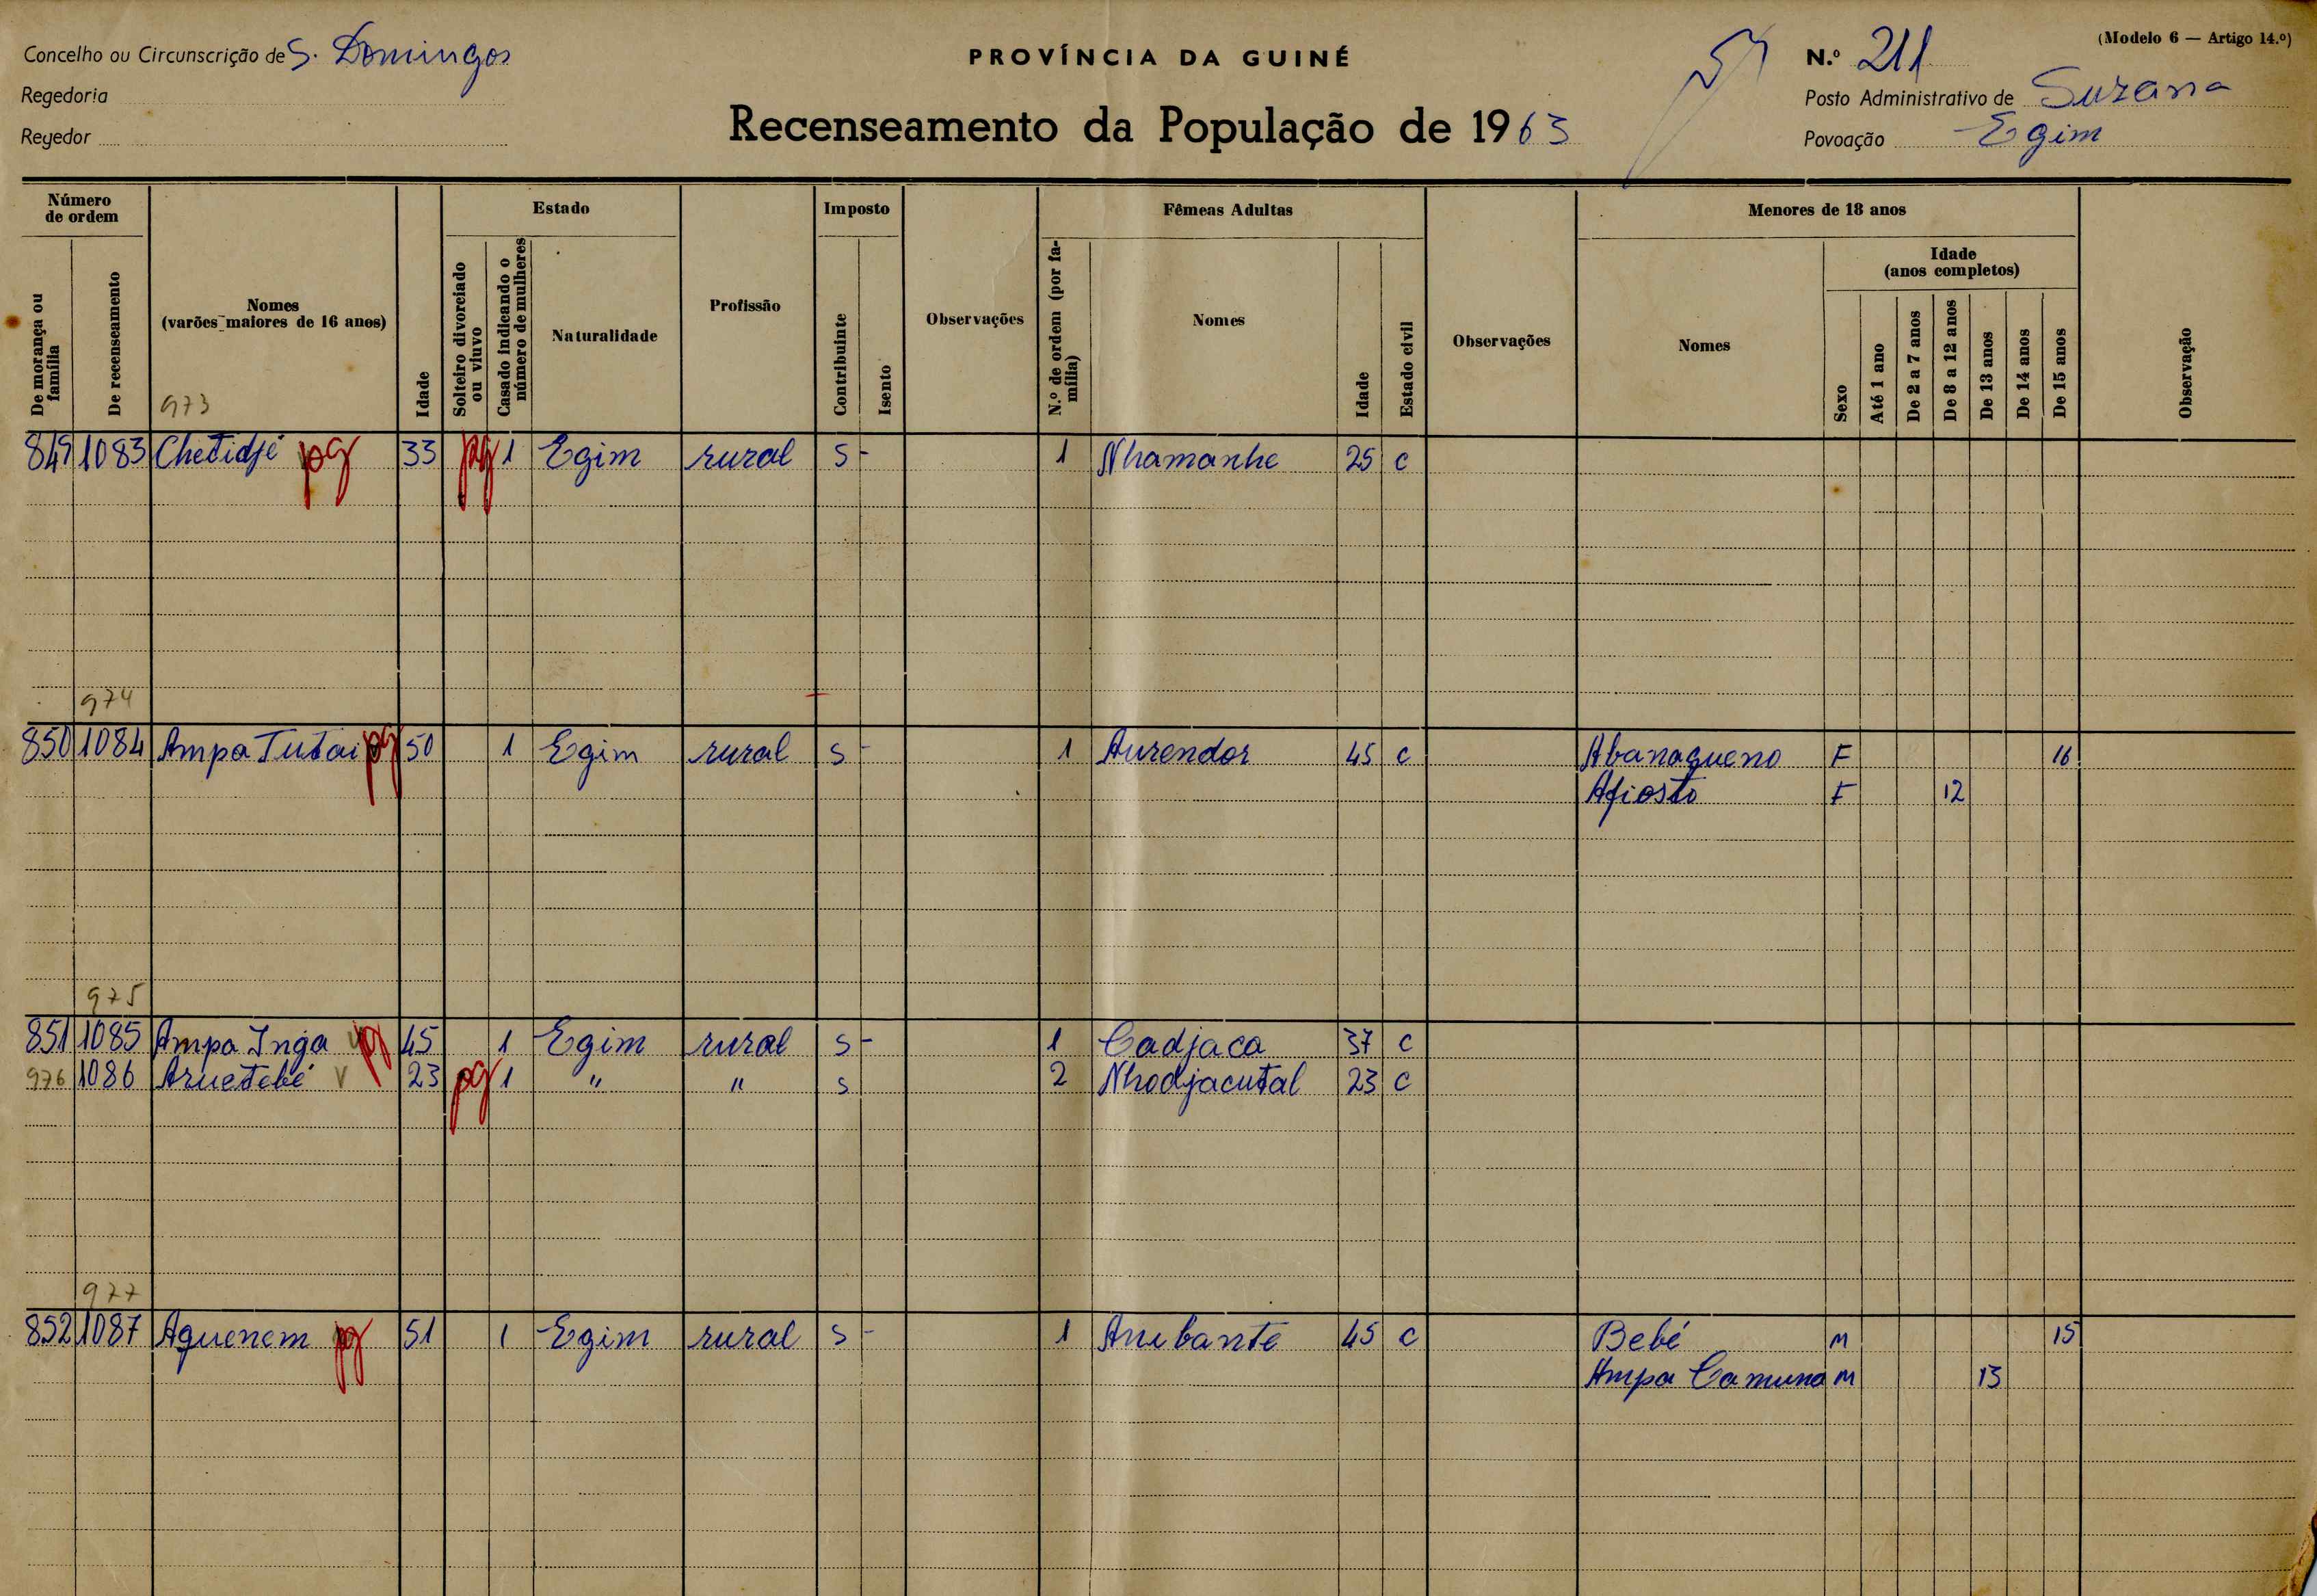 Concelho ou Circunscrição de S. Domingos
Regedoria
Regedor
PROVÍNCIA DA GUINÉ
Recenseamento da População de 1963
(Modelo 6 — Artigo 14.º)
N.º 211
Posto Administrativo de Suzana
Povoação Egim
Número de ordem
De morança ou família
De recenseamento
Nomes
(varões maiores de 16 anos)
973
Idade
Estado
Solteiro divorciado ou viuvo
Casado indicando o número de mulheres
Naturalidade
Profissão
Imposto
Contribuinte
Isento
Observações
Fêmeas Adultas
N.º de ordem (por família)
Nomes
Idade
Estado civil
Observações
Menores de 18 anos
Nomes
Sexo
Idade
(anos completos)
Até 1 ano
De 2 a 7 anos
De 8 a 12 anos
De 13 anos
De 14 anos
De 15 anos
Observação
849 1083 Chetidjé pg 33 pg 1 Egim rural S - 1 Nhamanhe 25 c
974
850 1084 Ampa Tutai pg 50 1 Egim rural S - 1 Aurendor 45 c Abanaqueno F 16
Afiosto F 12
975
851 1085 Ampa Inga pg 45 1 Egim rural S - 1 Cadjaca 37 c
976 1086 Aruetebé V 23 pg 1 " " S 2 Nhodjacutal 23 c
977
852 1087 Aquenem pg 51 1 Egim rural S - 1 Anibante 45 c Bebé M 15
Ampa Camuna M 13